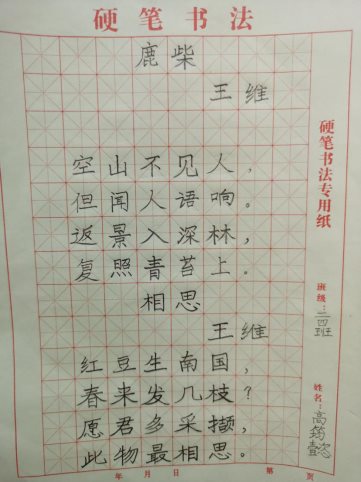 硬笔书法
鹿柴
王维
空山不见人，
但闻人语响。
返景入深林，
复照青苔上。
相思
王维
红豆生南国，
春来发几枝？
愿君多采撷，
此物最相思。
硬笔书法专用纸
班级：二四班
姓名：高筠懿
年 月 日 第 页